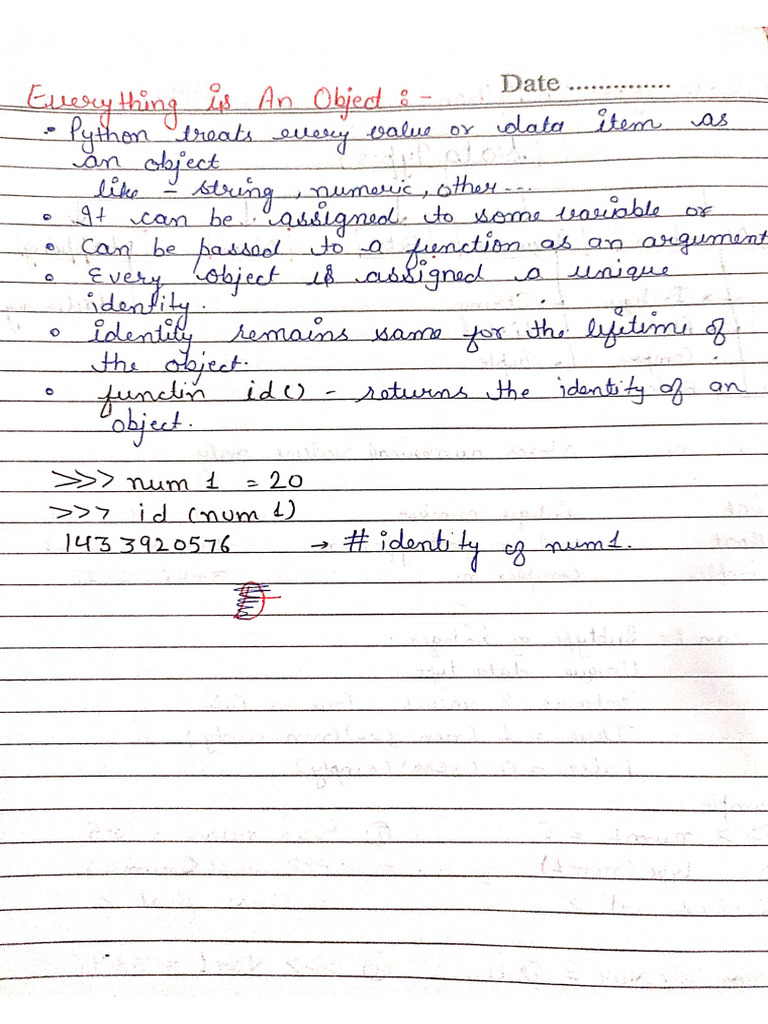 Date ..............
Everything is An Object :-
• Python treats every value or data item as
an object
like - string, numeric, other...
• It can be assigned to some variable or
• Can be passed to a function as an argument
• Every object is assigned a unique
identity.
• identity remains same for the lifetime of
the object.
• functin id() - returns the identity of an
object.
>>> num 1 = 20
>>> id (num 1)
1433920576 → # identity of num1.